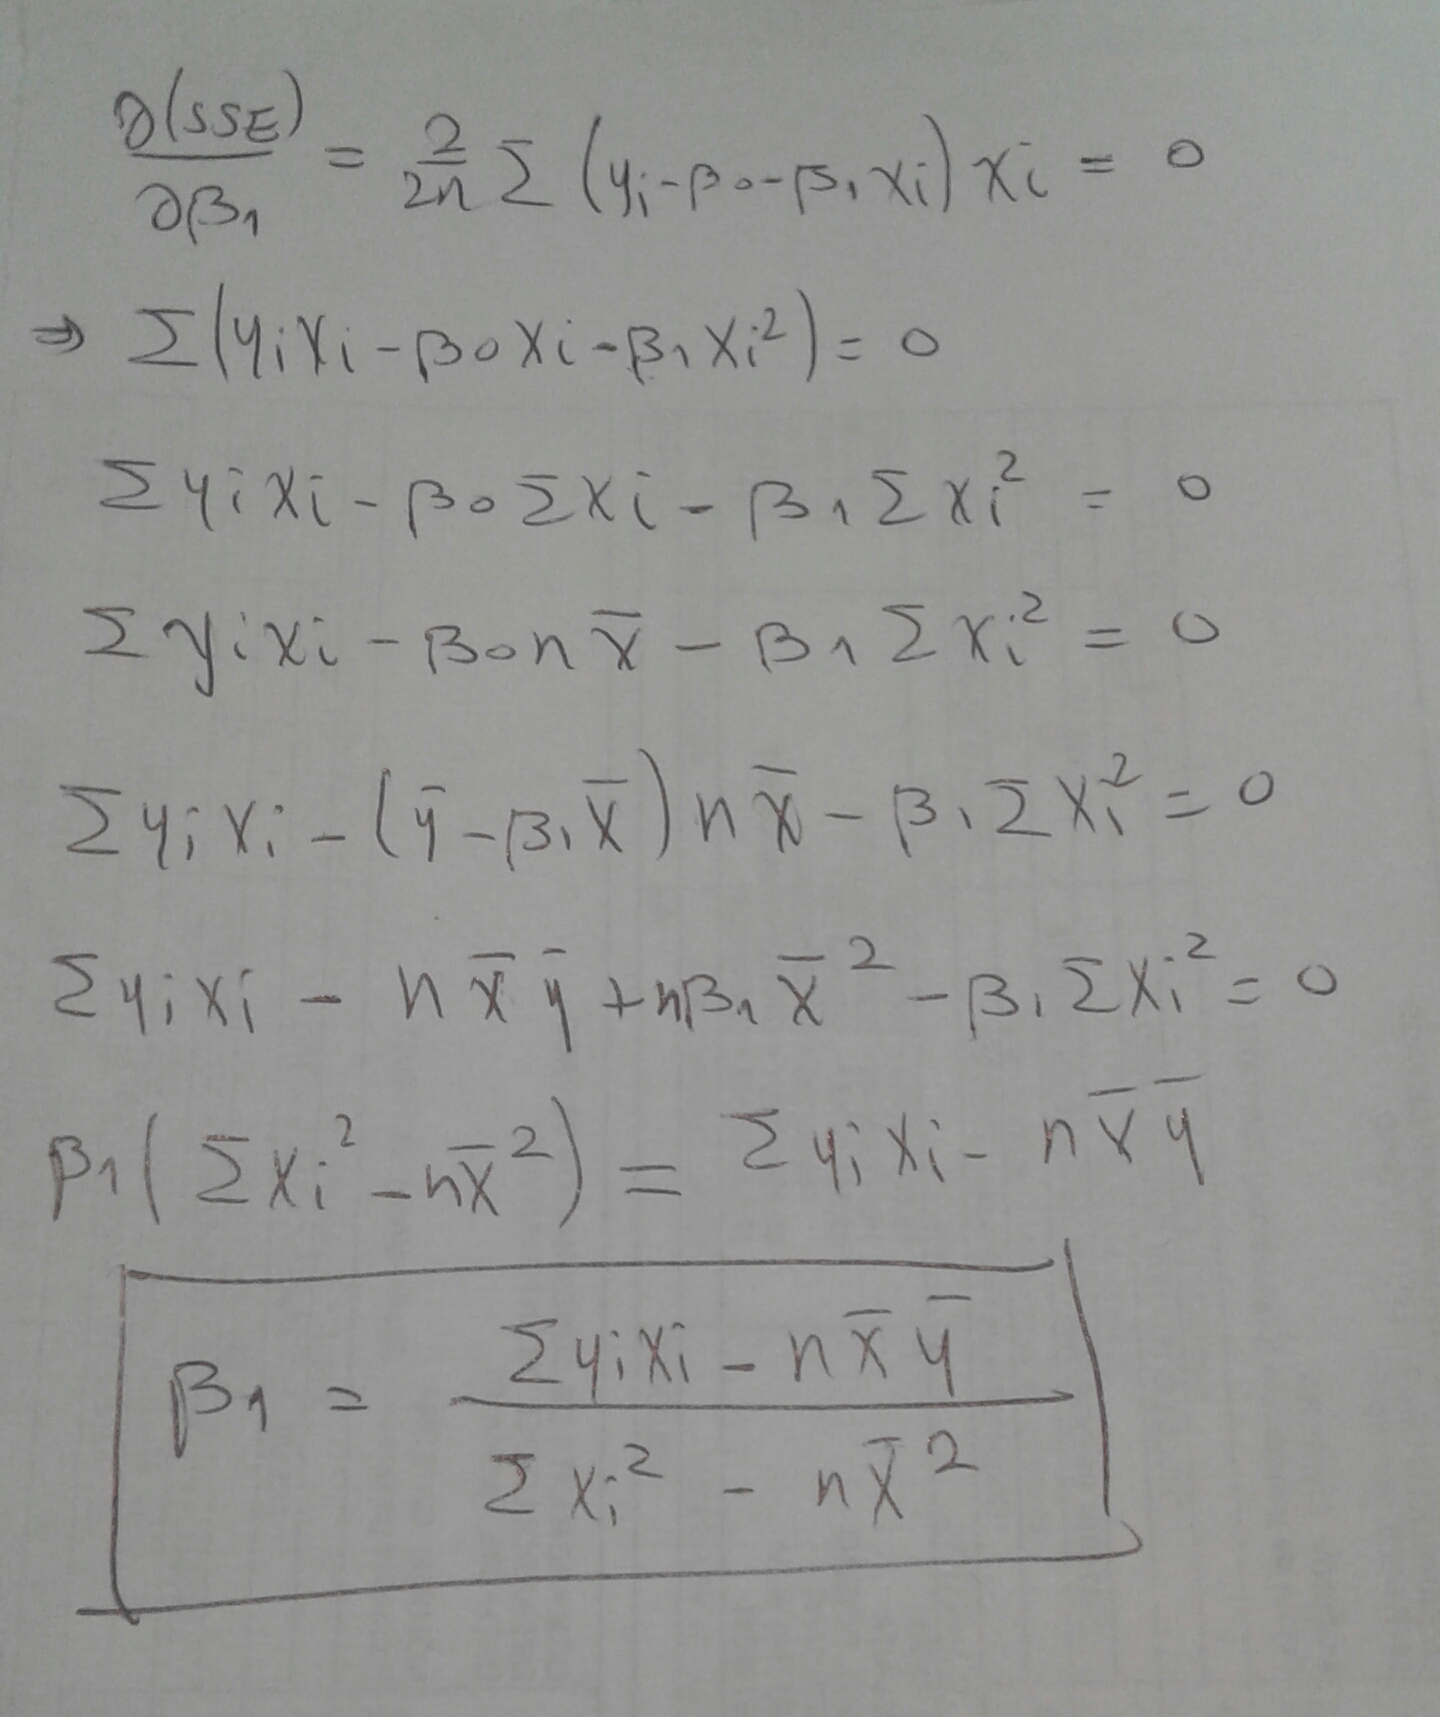 ∂(SSE)/∂β₁ = 2/2n Σ (yᵢ-β₀-β₁xᵢ) xᵢ = 0
⇒ Σ(yᵢxᵢ-β₀xᵢ-β₁xᵢ²) = 0
Σyᵢxᵢ - β₀Σxᵢ - β₁Σxᵢ² = 0
Σyᵢxᵢ - β₀nx̄ - β₁Σxᵢ² = 0
Σyᵢxᵢ - (ȳ-β₁x̄)nx̄ - β₁Σxᵢ² = 0
Σyᵢxᵢ - nx̄ȳ + nβ₁x̄² - β₁Σxᵢ² = 0
β₁(Σxᵢ² - nx̄²) = Σyᵢxᵢ - nx̄ȳ
β₁ = (Σyᵢxᵢ - nx̄ȳ)/(Σxᵢ² - nx̄²)